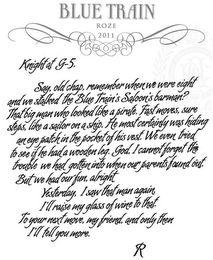 BLUE TRAIN
ROZE
2011
Knight at G-5.
Say, old chap, remember when we were eight
and we stalked the Blue Train's Saloon's barman?
That big man who looked like a pirate. Fast moves, sure
steps, like a sailor on a ship. He most certainly was hiding
an eye patch in the pocket of his vest. We even tried
to see if he had a wooden leg. God, I cannot forget the
trouble we had gotten into when our parents found out.
But we had fun, alright.
Yesterday, I saw that man again.
I'll raise my glass of wine to that.
To your next move, my friend, and only then
I'll tell you more.
R